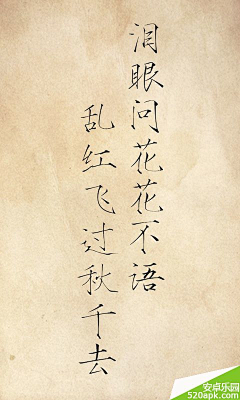 泪眼问花花不语
乱红飞过秋千去
安卓乐园
520apk.com